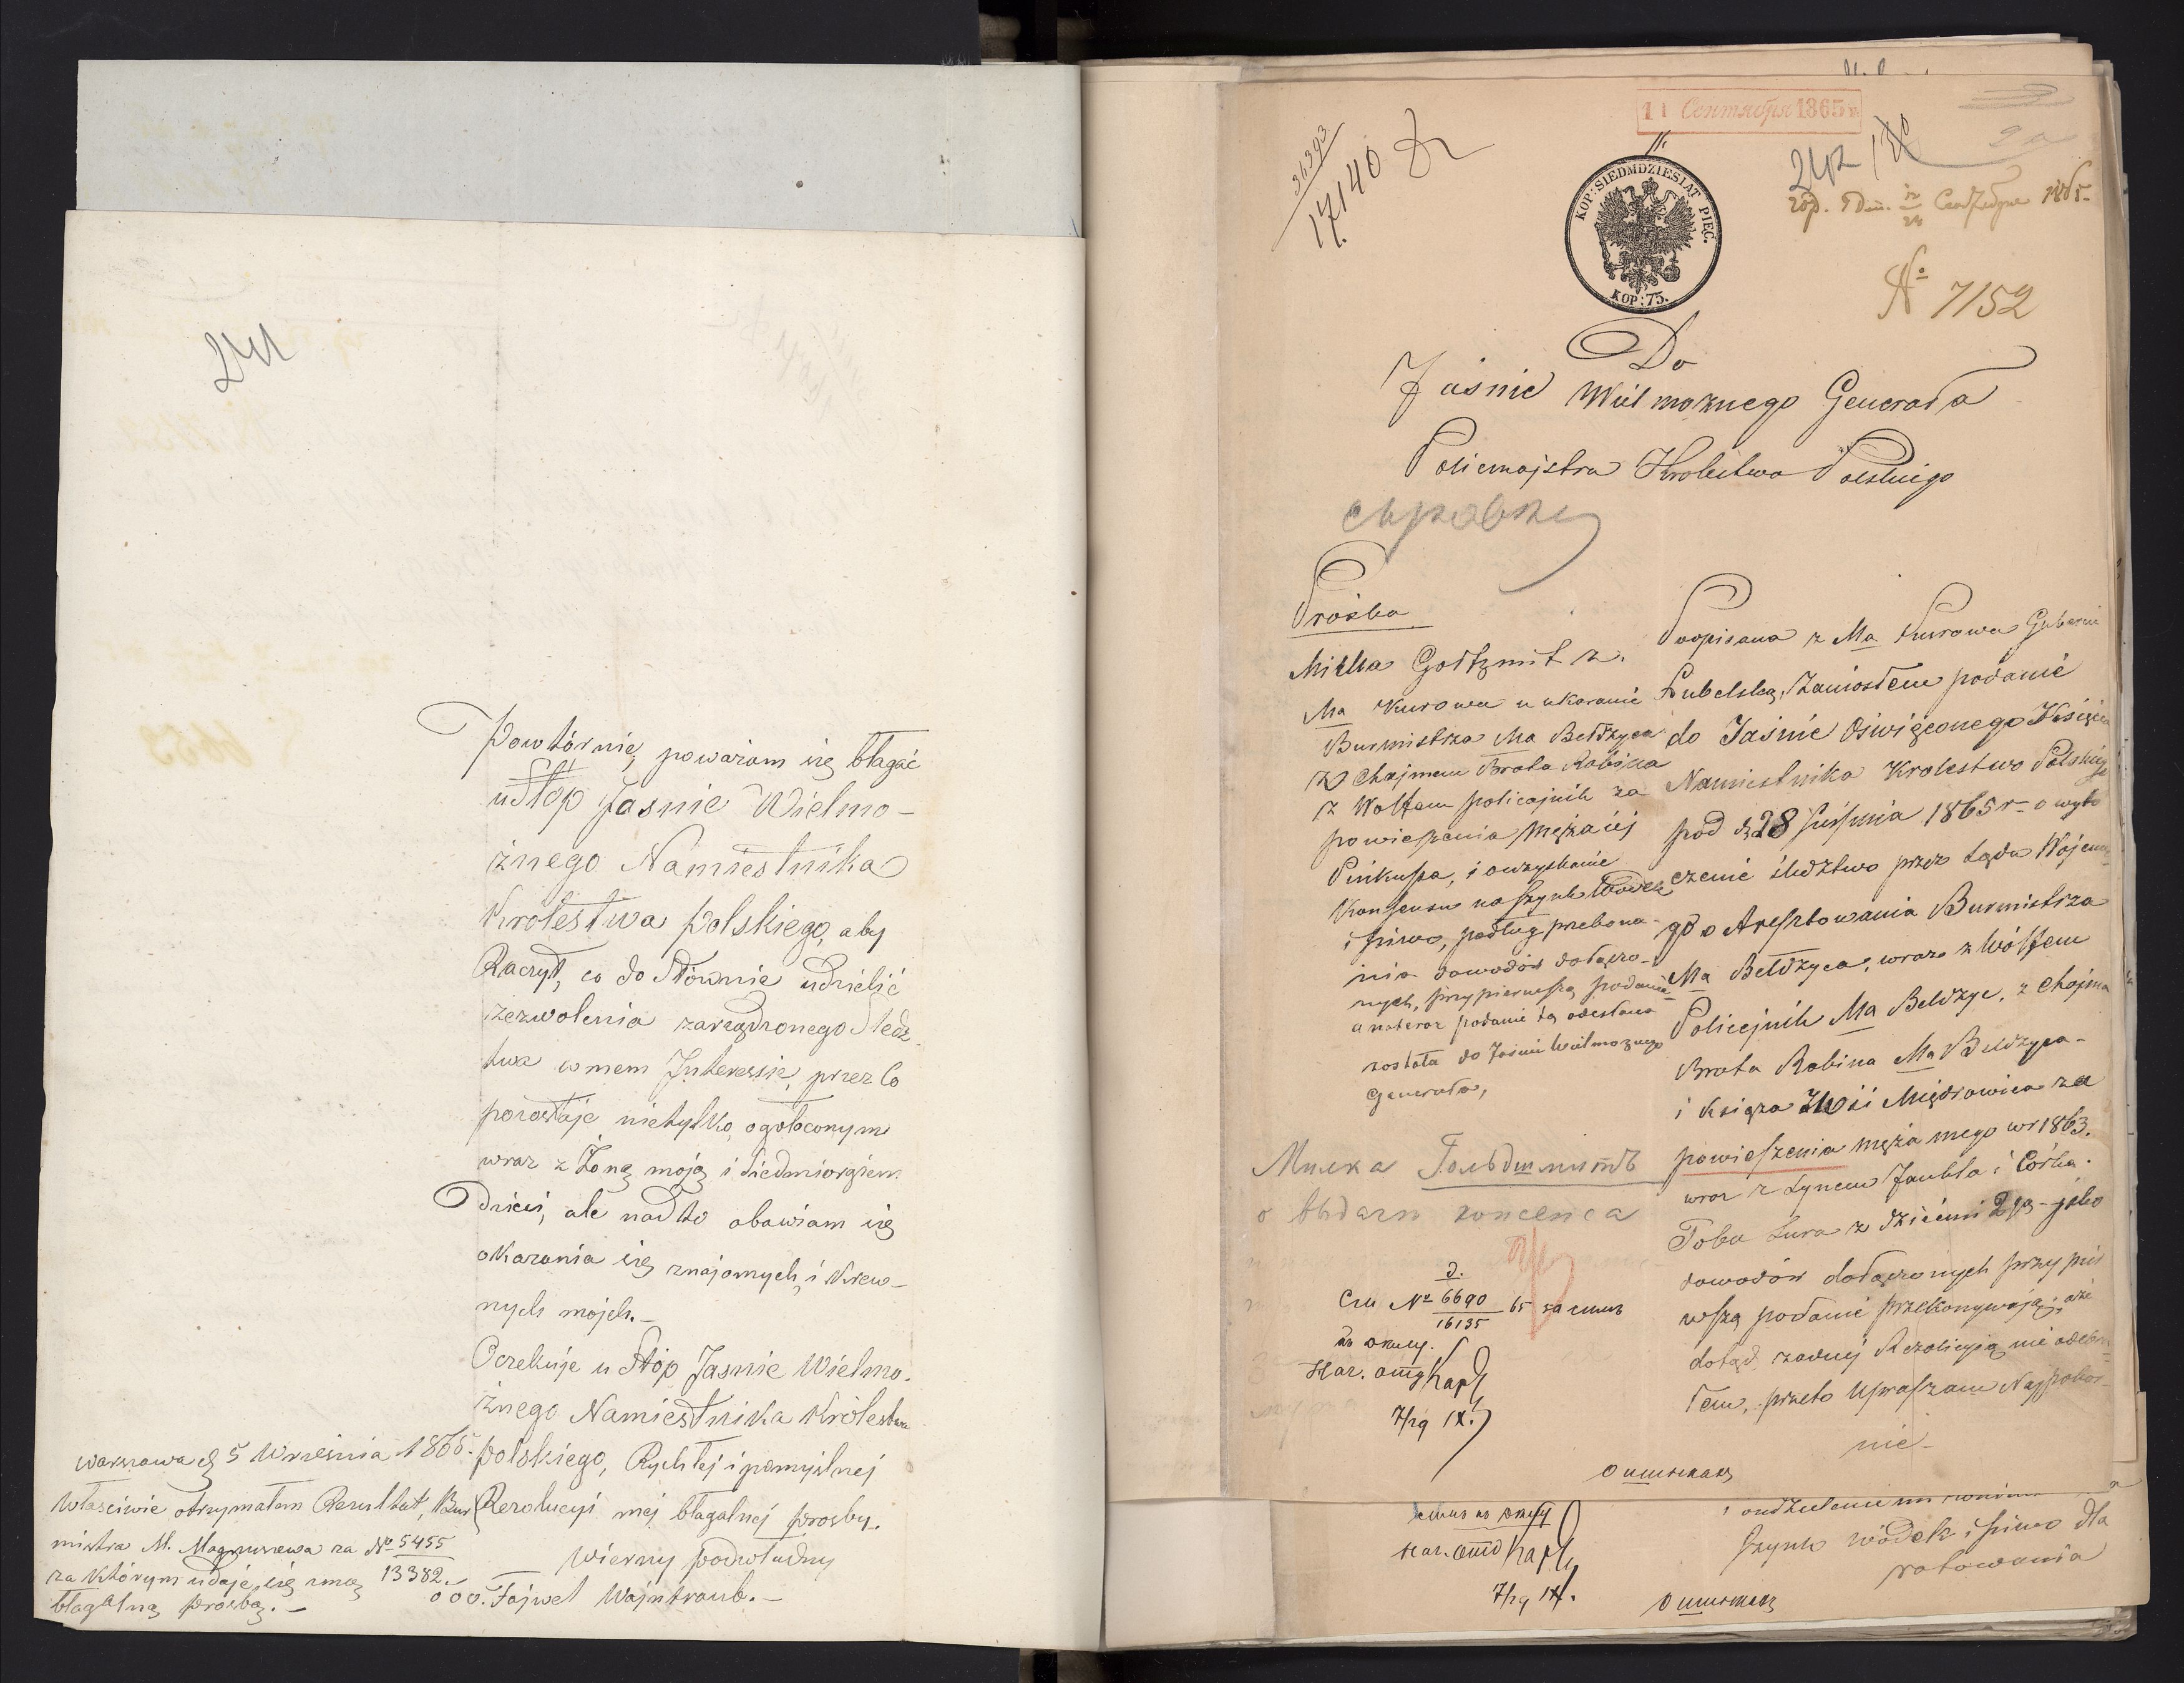 241
Powtórnie, poważam się błagać
u Stóp Jaśnie Wielmo-
żnego Namiestnika
Krolestwa Polskiego, aby
Raczył, co do Słownie udzielić
zezwolenia zarządzonego Sledz-
twa w mem Interessie, przez co
pozostaje nietylko, ogołoconym
wraz z Żoną moją i siedmiorgiem
Dzieci, ale nadto obawiam się
okazania się znajomych, i Krew-
nych mojch.-
Oczekuje u Stóp Jasnie Wielmo-
żnego Namiestnika Królestwa
Polskiego, Rychłej i pomyślnej
Rezolucyi mej błagalnej prośby.
Wierny podwładny
000. Fajwel Wajntraub.-
Warszawa d 5 Września 1865.
Właściwie otrzymałem Rezultat, Bur
mistra M. Magnuszewa za No 5455
13382.
za którym udaje się z moją
błagalną Prozbą.-
11 Сентября 1865 г.
34393
17140
KOP: SIEDMDZIESIĄT PIĘĆ.
KOP: 75.
242
1865
No 7152
Do
Jaśnie Wielmożnego Generała
Policmajstra Krolestwa Polskiego
справку
Prośba
Milka Goldszmit z
Ma Kurowa u ukaranie
Burmistrza Ma Bełdzyca
z Chajmem Brata Rabina
z Wolfem policajnik za
powieszenia męża jej
Pinkusa, i o uzyskanie
Konsensu na szynk Wódek
i piwo, podług przekona-
nia dowodów dołączo-
nych, przy pierwszą podanie
a nateraz podanie ta odesłana
została do Jaśnie Wielmożnego
Generała,
Милка Гольдшмитъ
о выдачи консенса
No 6690
16135
65
Нач. отд.
7/19 IX.
Podpisana z Ma Kurowa Guberni
Lubelską, Zaniosłem podanie
do Jaśnie Oświęconego Księcia
Namiestnika Krolestwo Polskiego
pod d 28 Sierpnia 1865 r - o wyto
czenie śledztwo przez Sądu Wojenne
go o Aresztowania Burmistrza
Ma Bełdzyca, wraz z Wólfem
Policejnik Ma Beldzyc, z Chajma
Brata Rabina Ma Beldzyca-
i Księza Wsi Międzowica za
powieszenia męża mego w r 1863.
wraz z Synem Jankla i Córka
Toba Sura z dziećmi 2ga - jako
dowodów dołączonych przy pier
wszą podanie przekonywają, aże
dotąd, żadnej Rezolicyją nie odebra
łem, przeto Upraszam Najpokor-
nie-
Нач. отд
7/19 IX.
Szynk wódek i piwo dla
ratowania